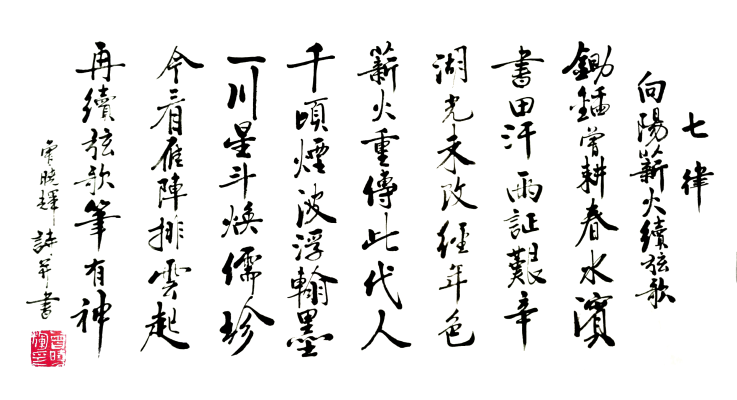 七律
向陽薪火續弦歌
鋤鐳曾耕春水濱
書田汗雨証艱辛
湖光未改經年色
薪火重傳此代人
千頃煙波浮翰墨
一川星斗煥儒珍
今看雁陣排雲起
再續弦歌筆有神
曾曉輝詩并書